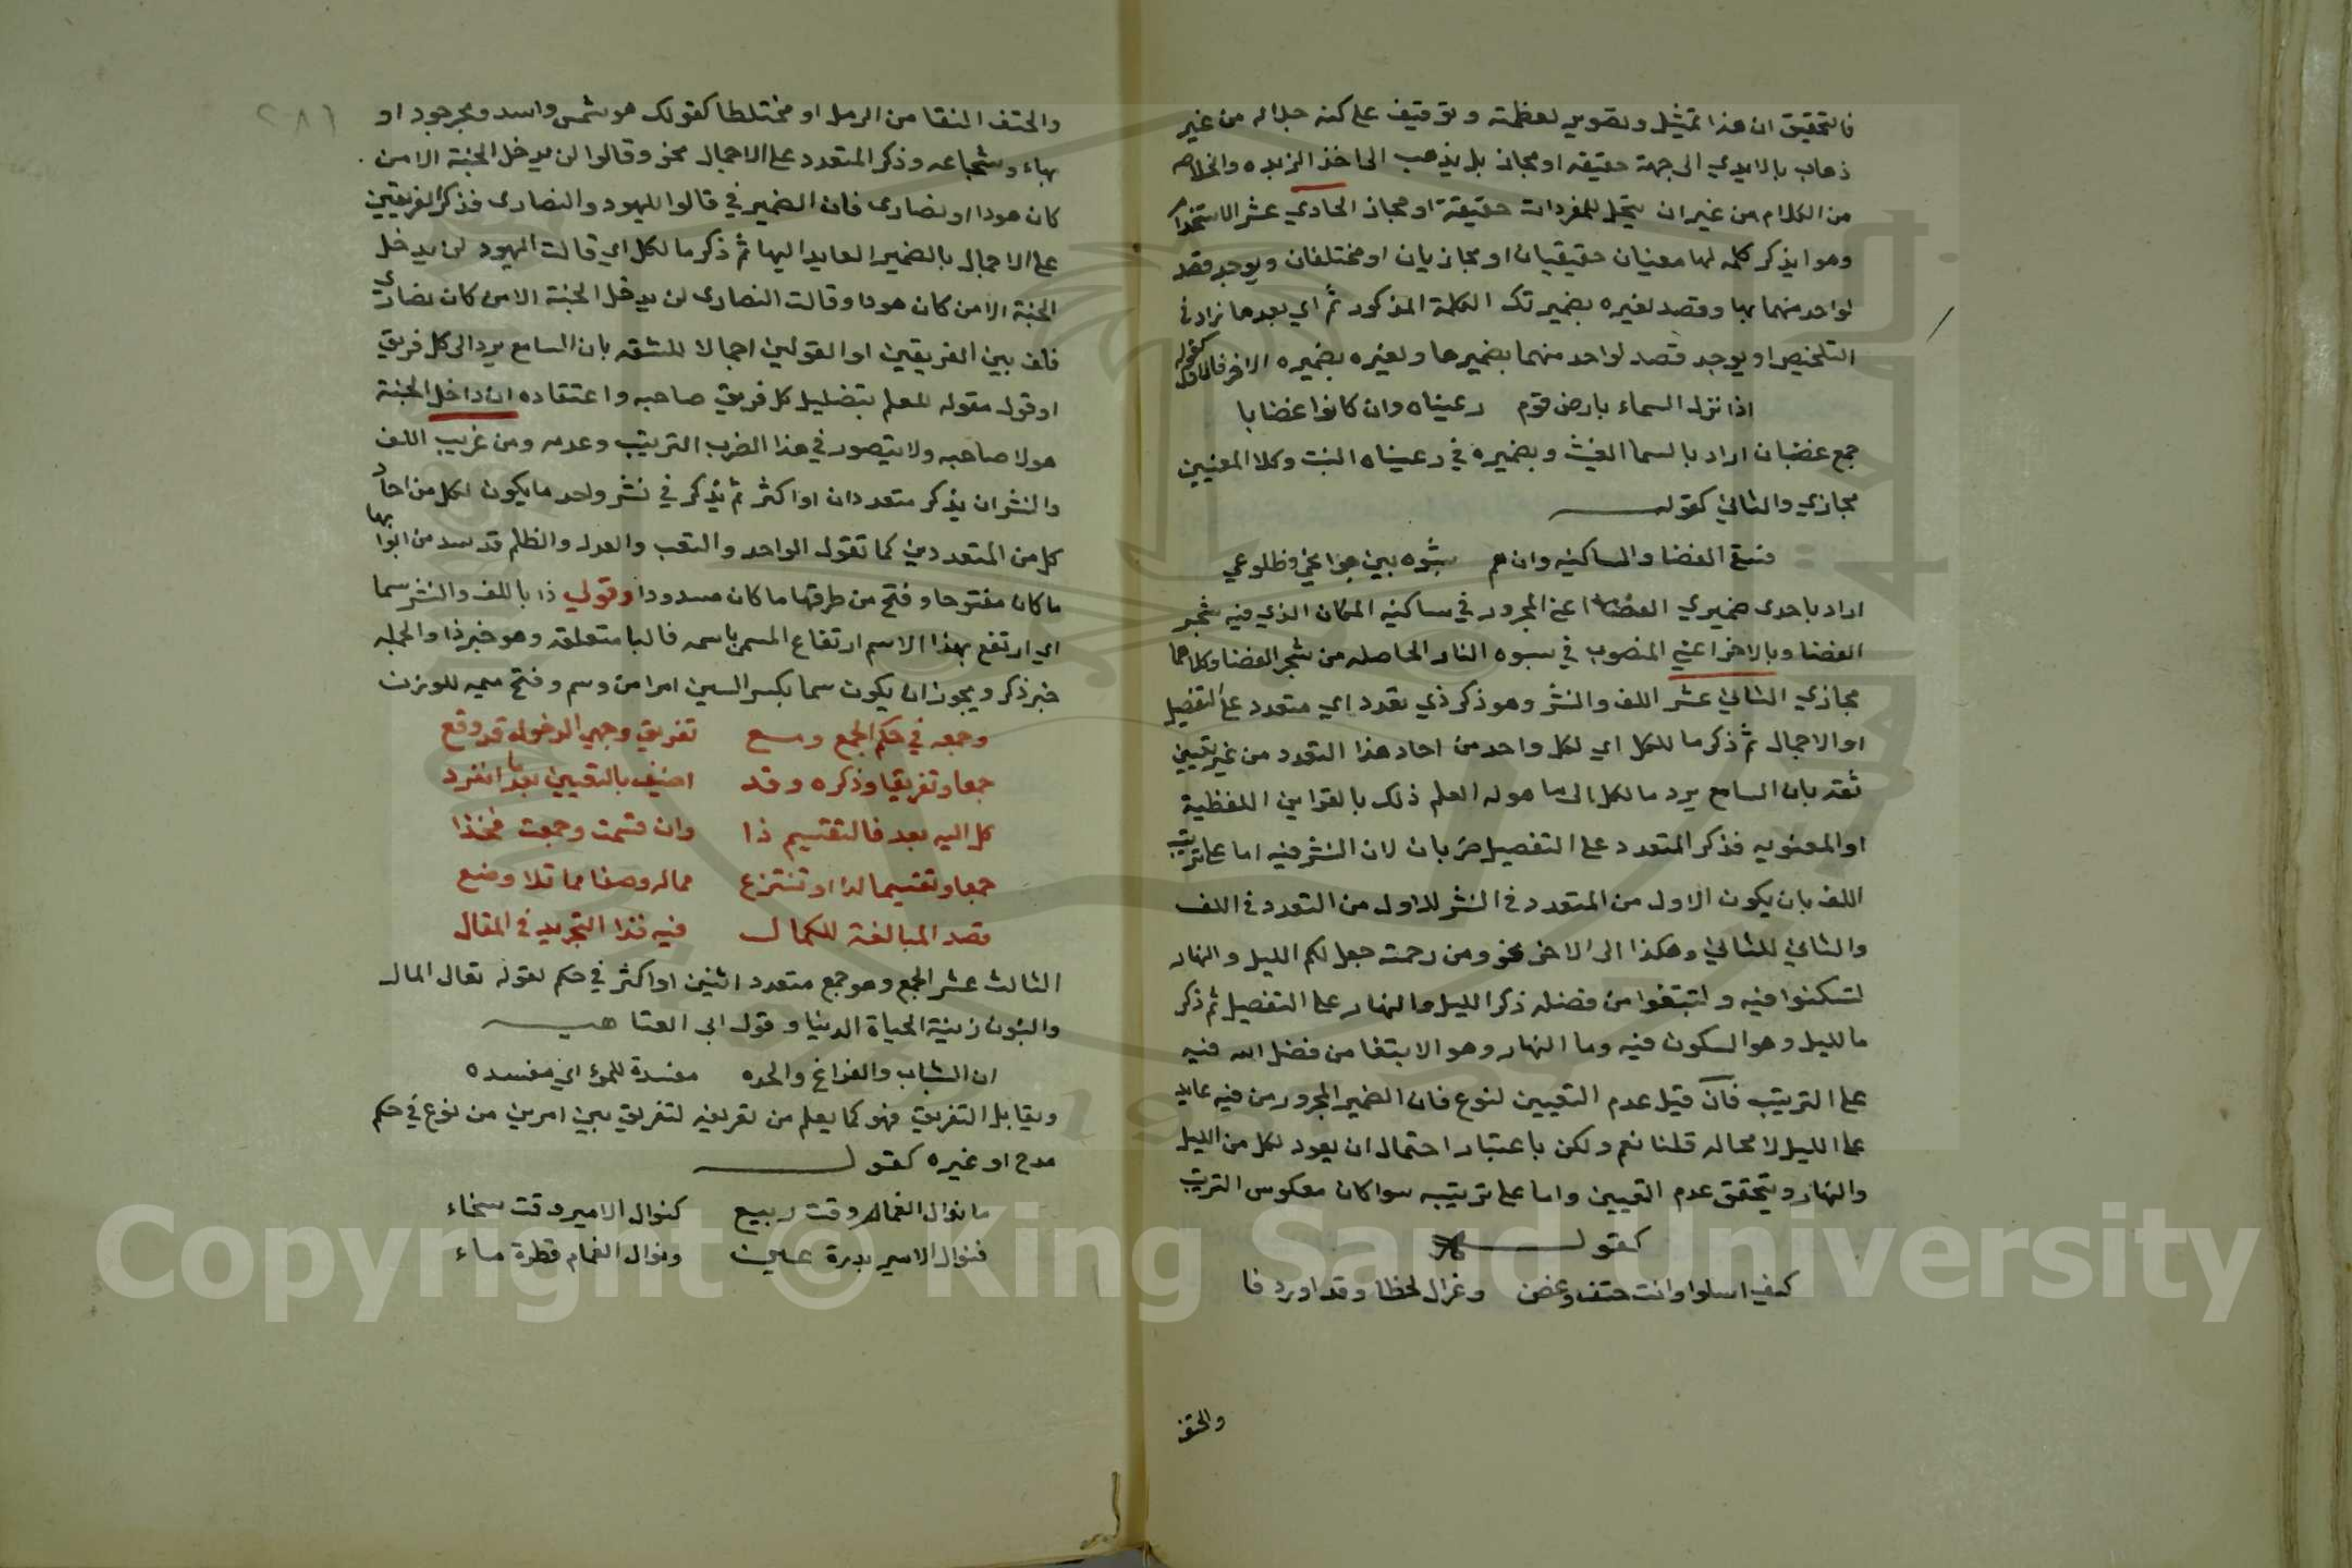 فالتحقيق ان هذا تمثيل وتصوير لعظمته وتوقيف على كنه جلاله من غير
ذهاب بالايدي الى جهة حقيقه او مجاز بل يذهب الى اخذ الزبده والخلاصه
من الكلام من غير ان يتمحل للمفردات حقيقة او مجاز الحادي عشر الاستخدام
وهو ايذكر كلمه لها معنيان حقيقيان او مجازيان او مختلفان ويوجد قصد
لواحد منهما بها وقصد لغيره بضمير تلك الكلمة المذكور ثم اي بعدها زاد في
التلخيص او يوجد قصد لواحد منهما بضميرها ولغيره بضميره الاخر فالاول كقوله
اذا نزل السماء بارض قوم رعيناه وان كانوا غضابا
جمع غضبان اراد بالسما الغيث وبضميره في رعيناه النبت وكلا المعنيين
مجازي والثاني كقوله
فسقى الغضا والساكنيه وان هم شبوه بين جوانحي وظلوعي
اراد باحدى ضميري الغضا اعني المجرور في ساكنيه المكان الذي فيه شجر
الغضا وبالاخر اعني المنصوب في شبوه النار الحاصله من شجر الغضا وكلاهما
مجازي الثاني عشر اللف والنشر وهو ذكر ذي تعدد اي متعدد على التفصيل
او الاجمال ثم ذكر ما للكل اي لكل واحد من احاد هذا التعدد من غير تعيين
ثقة بان السامع يرد ما لكل الى ما هو له العلم ذلك بالقراين اللفظية
او المعنويه فذكر المتعدد على التفصيل ضربان لان النشر فيه اما على ترتيب
اللف بان يكون الاول من المتعدد في النشر للاول من التعدد في اللف
والثاني للثاني وهكذا الى الاخر نحو ومن رحمته جعل لكم الليل والنهار
لتسكنوا فيه ولتبتغوا من فضله ذكر الليل والنهار على التفصيل ثم ذكر
ما لليل وهو السكون فيه وما النهار وهو الابتغا من فضل الله فيه
على الترتيب فان قيل عدم التعيين لنوع فان الضمير المجرور من فيه عايد
على الليل لا محاله قلنا نعم ولكن باعتبار احتمال ان يعود لكل من الليل
والنهار ويتحقق عدم التعيين واما على ترتيبه سوا كان معكوس الترتيب
كقوله
كيف اسلوا وانت حقف وغصن وغزال لحظا وقدا وردفا
والحقف
٢٨١
والحقف النقا من الرمل او مختلطا كقولك هو شمس واسد وبحر جود او
بهاء وشجاعه وذكر المتعدد على الاجمال نحو وقالوا لن يدخل الجنة الا من
كان هودا او نصارى فان الضمير في قالوا لليهود والنصارى فذكر الفريقين
على الاجمال بالضمير العايد اليها ثم ذكر ما لكل اي قالت اليهود لن يدخل
الجنة الا من كان هودا وقالت النصارى لن يدخل الجنة الا من كان نصارى
فلف بين الفريقين او القولين اجمالا للثقه بان السامع يرد الى كل فريق
او قول مقوله للعلم بتضليل كل فريق صاحبه واعتقاده ان داخل الجنة
هو لا صاحبه ولا يتصور في هذا الضرب الترتيب وعدمه ومن غريب اللف
والنشر ان يذكر متعددان او اكثر ثم يذكر في نشر واحد ما يكون لكل من احاد
كل من المتعددين كما تقول الواحد والتعب والعدل والظلم قد سد من ابوابها
ما كان مفتوحا وفتح من طرقها ما كان مسدودا وقولي ذا باللف والنشر سما
اي ارتفع بهذا الاسم ارتفاع المسمى باسمه فالبا متعلقه وهو خبر ذا والجمله
خبر ذكر ويجوز ان يكون سما بكسر السين امرا من وسم وفتح ميمه للوزن
وجمعه في حكم الجمع وسع تفريق وجهي الدخول قد وقع
جمعا وتفريقا وذكره وقد اضيف بالتعيين بعد ما انفرد
كل اليه بعد فالتقسيم ذا وان قسمت وجمعت فخذا
جمعا وتقسيما لذا او تنتزع مماله وصفا مما تلا وضع
قصد المبالغة للكمال فيه فذا التجريد في المقال
الثالث عشر الجمع وهو جمع متعدد اثنين او اكثر في حكم لقوله تعالى المال
والبنون زينة الحياة الدنيا وقول ابي العتاهيه
ان الشباب والفراغ والجده مفسدة للمرء اي مفسده
ويقابل التفريق فهو كما يعلم من تعريفه لتفريق بين امرين من نوع في حكم
مدح او غيره كقوله
ما نوال الغمام وقت ربيع كنوال الامير وقت سخاء
فنوال الامير بدرة عين ونوال الغمام قطرة ماء
Copyright © King Saud University